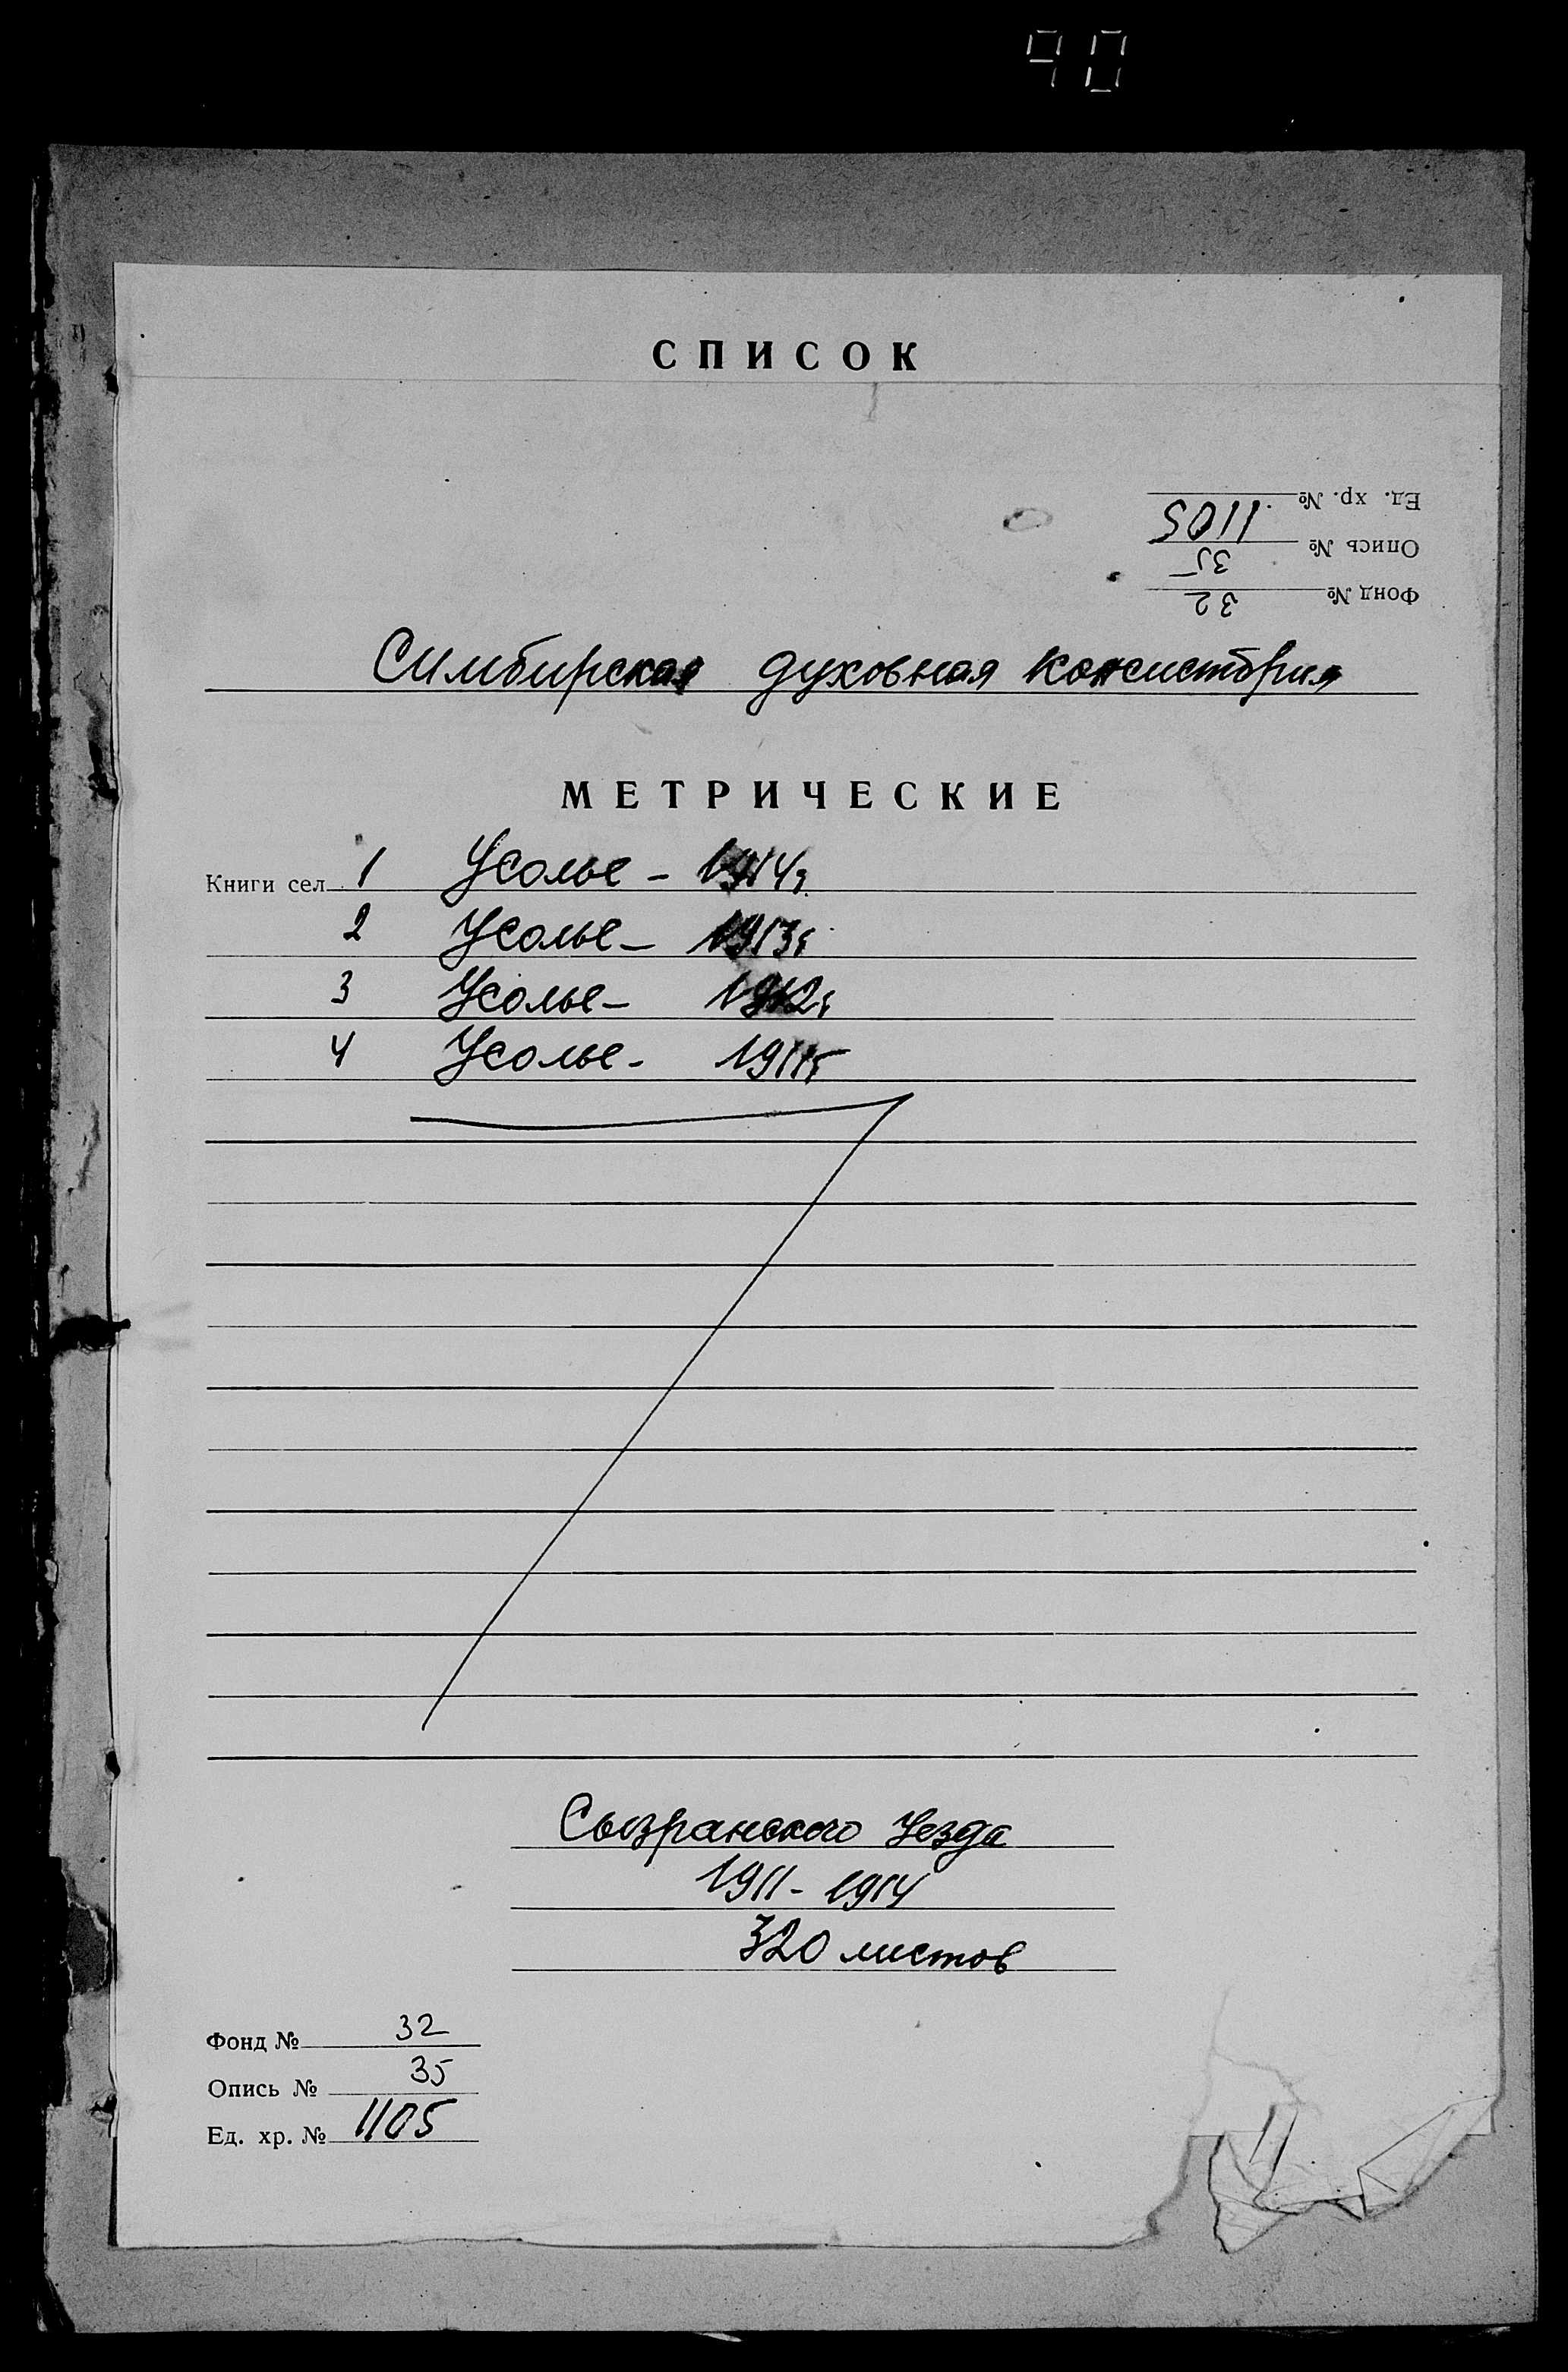 90
СПИСОК
Ед. хр. № 1105
Опись № 35
Фонд № 32
Симбирская духовная консистория
МЕТРИЧЕСКИЕ
Книги сел 1 Усолье - 1914г.
2 Усолье - 1913г
3 Усолье - 1912г
4 Усолье - 1911г
Сызранского Уезда
1911 - 1914
320 листов
Фонд № 32
Опись № 35
Ед. хр. № 1105